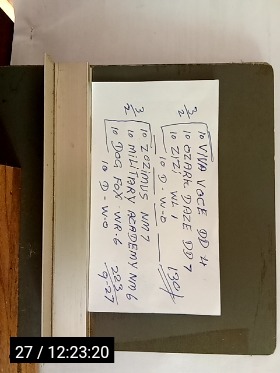 3/2
10 VIVA VOCE DD 4
10 OZARK DAZE DD 7
10 ZIZI WL 1
10 D-W-O
130/
3/2
10 ZOZIMUS NM7
10 MILITARY ACADEMY NM6
10 DOG FOX WR.6
10 D-W.O
223
9-27
27 / 12:23:20